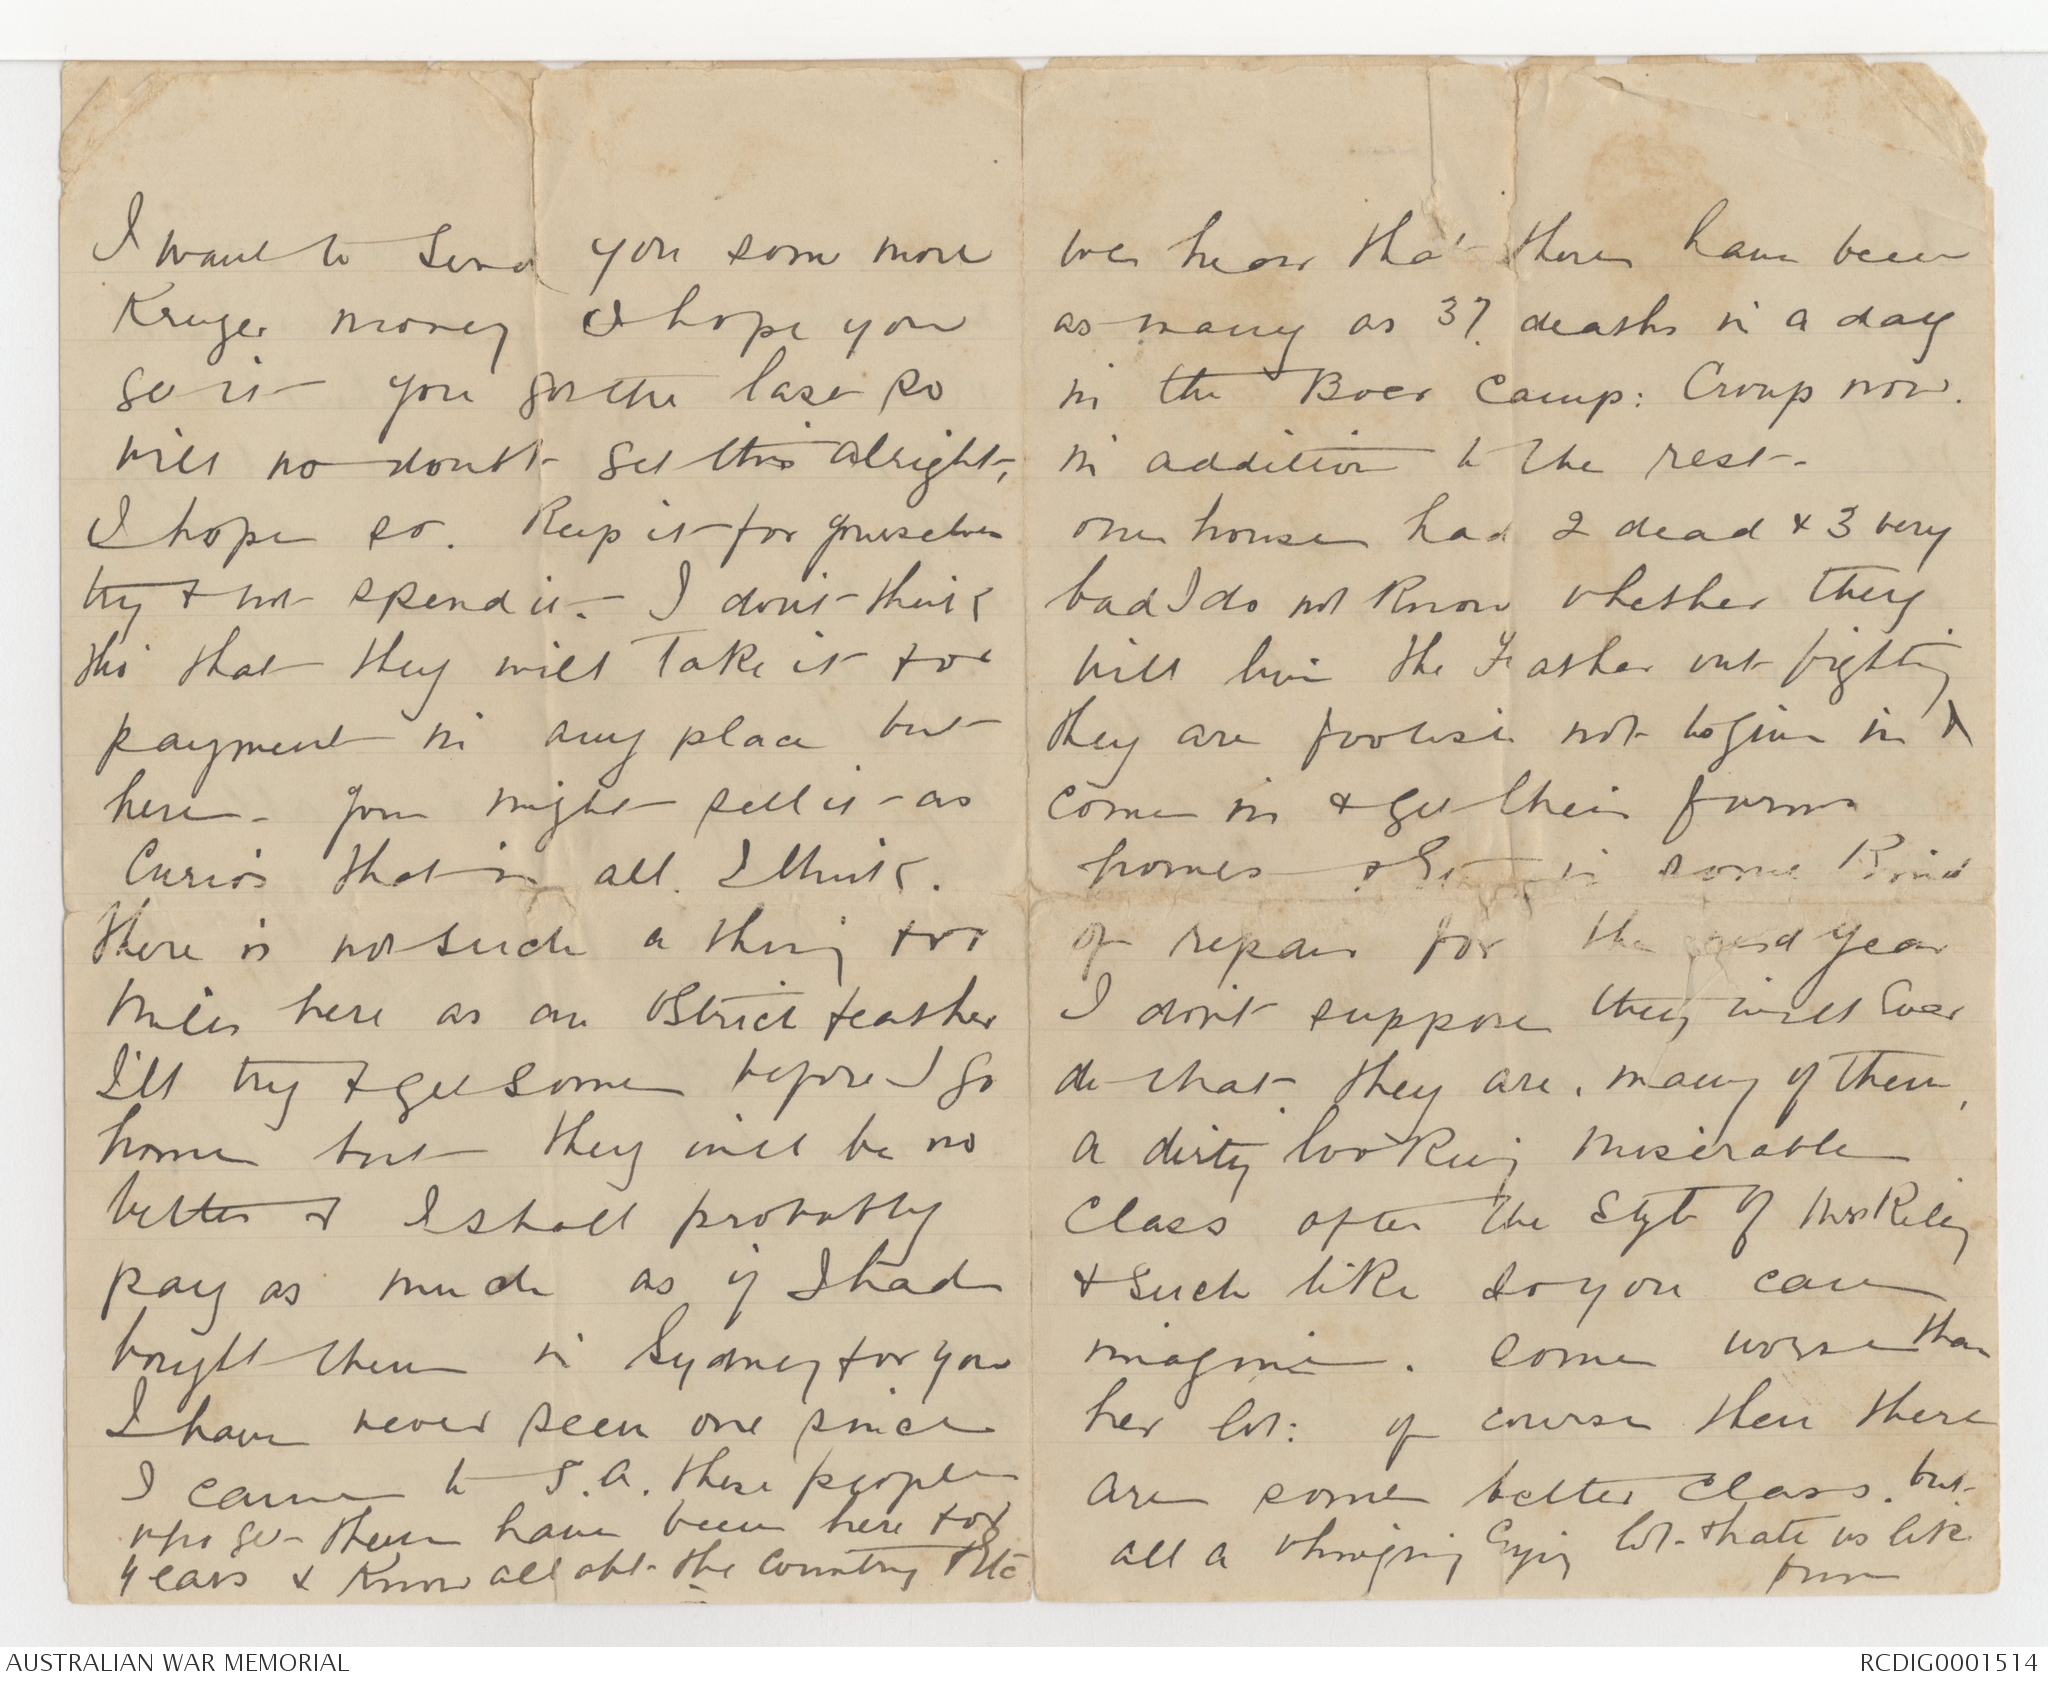 I want to send you some more
Kruger money I hope you
get it you got the last so
will no doubt get this alright,
I hope so. Keep it for yourselves
try & not spend it. I don't think
tho' that they will take it for
payment in any place but
here - you might sell it as
Curios that is all. I think.
There is not such a thing for
miles here as an Ostrich feather
I'll try & get some before I go
home but they will be no
better & I shall probably
pay as much as if I had
bought them in Sydney for you
I have never seen one since
I came to S.A. these people
who get them have been here for
years & know all abt the country &tc
we hear that there have been
as many as 37 deaths in a day
in the Boer Camp: Croup now.
in addition to the rest.
one house had 2 dead & 3 very
bad I do not know whether they
will live the Father out fighting
they are foolish not to give in &
come in & get their farms
homes & in some kind
of repair for the year
I don't suppose they will ever
do that. they are, many of them,
a dirty looking miserable
class after the style of Mrs Riley
& such like so you can
imagine. Some worse than
her lot: of course then there
are some better class. but
all a whinging lot. & hate us like